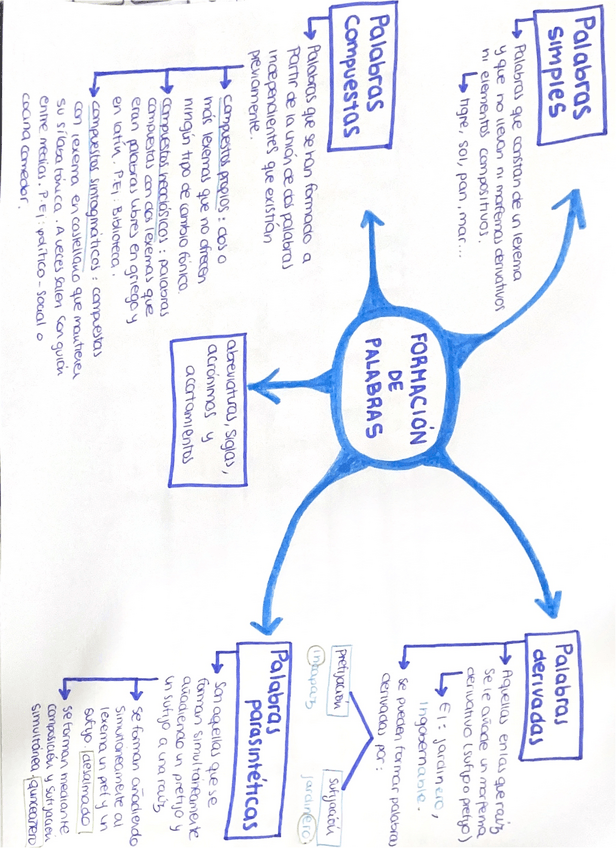 FORMACIÓN
DE
PALABRAS
Palabras
simples
Palabras que constan de un lexema
y que no llevan ni morfemas derivativos
ni elementos compositivos.
tigre, sol, pan, mar...
Palabras
compuestas
Palabras que se han formado a
partir de la unión de dos palabras
independientes que existían
previamente.
compuestos propios: dos o
más lexemas que no ofrecen
ningún tipo de cambio fónico.
compuestos neoclásicos: palabras
compuestas con dos lexemas que
eran palabras libres en griego y
en latín. P.Ej: Biblioteca.
compuestos sintagmáticos: compuestas
con lexema en castellano que mantienen
su sílaba tónica. A veces salen con guión
entre medias. P.Ej: político-social o
cocina comedor.
abreviaturas, siglas,
acrónimos y
acortamientos
Palabras
derivadas
Aquellas en las que raíz
se le añade un morfema
derivativo (sufijo o prefijo)
Ej: jardinero,
ingobernable.
se pueden formar palabras
derivadas por:
prefijación
incapaz
sufijación
jardinero
Palabras
parasintéticas
Son aquellas que se
forman simultáneamente
añadiendo un prefijo y
un sufijo a una raíz
se forman añadiendo
simultáneamente al
lexema un pref y un
sufijo desalmado
se forman mediante
composición y sufijación
simultánea quinceañero